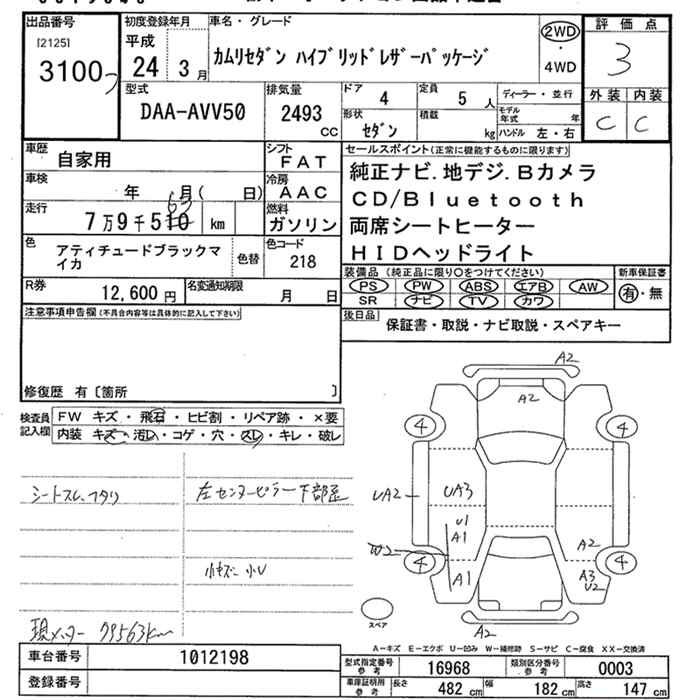 出品番号
[2125]
3100
初度登録年月
平成
24 3月
車名・グレード
カムリセダン ハイブリッドレザーパッケージ
2WD
・
4WD
評価点
3
外装 内装
C C
型式
DAA-AVV50
排気量
2493
CC
ドア 4
定員 5 人
ディーラー・並行
形状 セダン
積載 kg
モデル年式 年
ハンドル 左・右
車歴
自家用
シフト
FAT
車検
年 月( 日)
冷房
AAC
走行
7万9千510 km
63
燃料
ガソリン
セールスポイント(正常に機能するものに限ります)
純正ナビ.地デジ.Bカメラ
CD/Bluetooth
両席シートヒーター
HIDヘッドライト
色
アティチュードブラックマイカ
色替
色コード
218
R券
12,600円
名変通知期限
月 日
装備品(純正品に限り○をつけてください)
PS PW ABS エアB AW
SR ナビ TV カワ
新車保証書
有・無
注意事項申告欄(不具合内容等は具体的に記入して下さい)
後日品
保証書・取説・ナビ取説・スペアキー
修復歴 有〔箇所 〕
検査員記入欄
FW キズ・飛石・ヒビ割・リペア跡・×要
内装 キズ・汚れ・コゲ・穴・スレ・キレ・破レ
シートスレ、フタリ
左センターピラー下部凹
小キズ 小U
現メーター 79563km
A2
A2
4 4
UA2
UA3
U1
A1
W2
A2
4 4
A1
A3
U2
A2
スペア
A-キズ E-エクボ U-凹み W-補修跡 S-サビ C-腐食 XX-交換済
車台番号 1012198
登録番号
型式指定番号参考 16968
類別区分番号参考 0003
車庫証明用参考 長さ 482 cm 幅 182 cm 高さ 147 cm